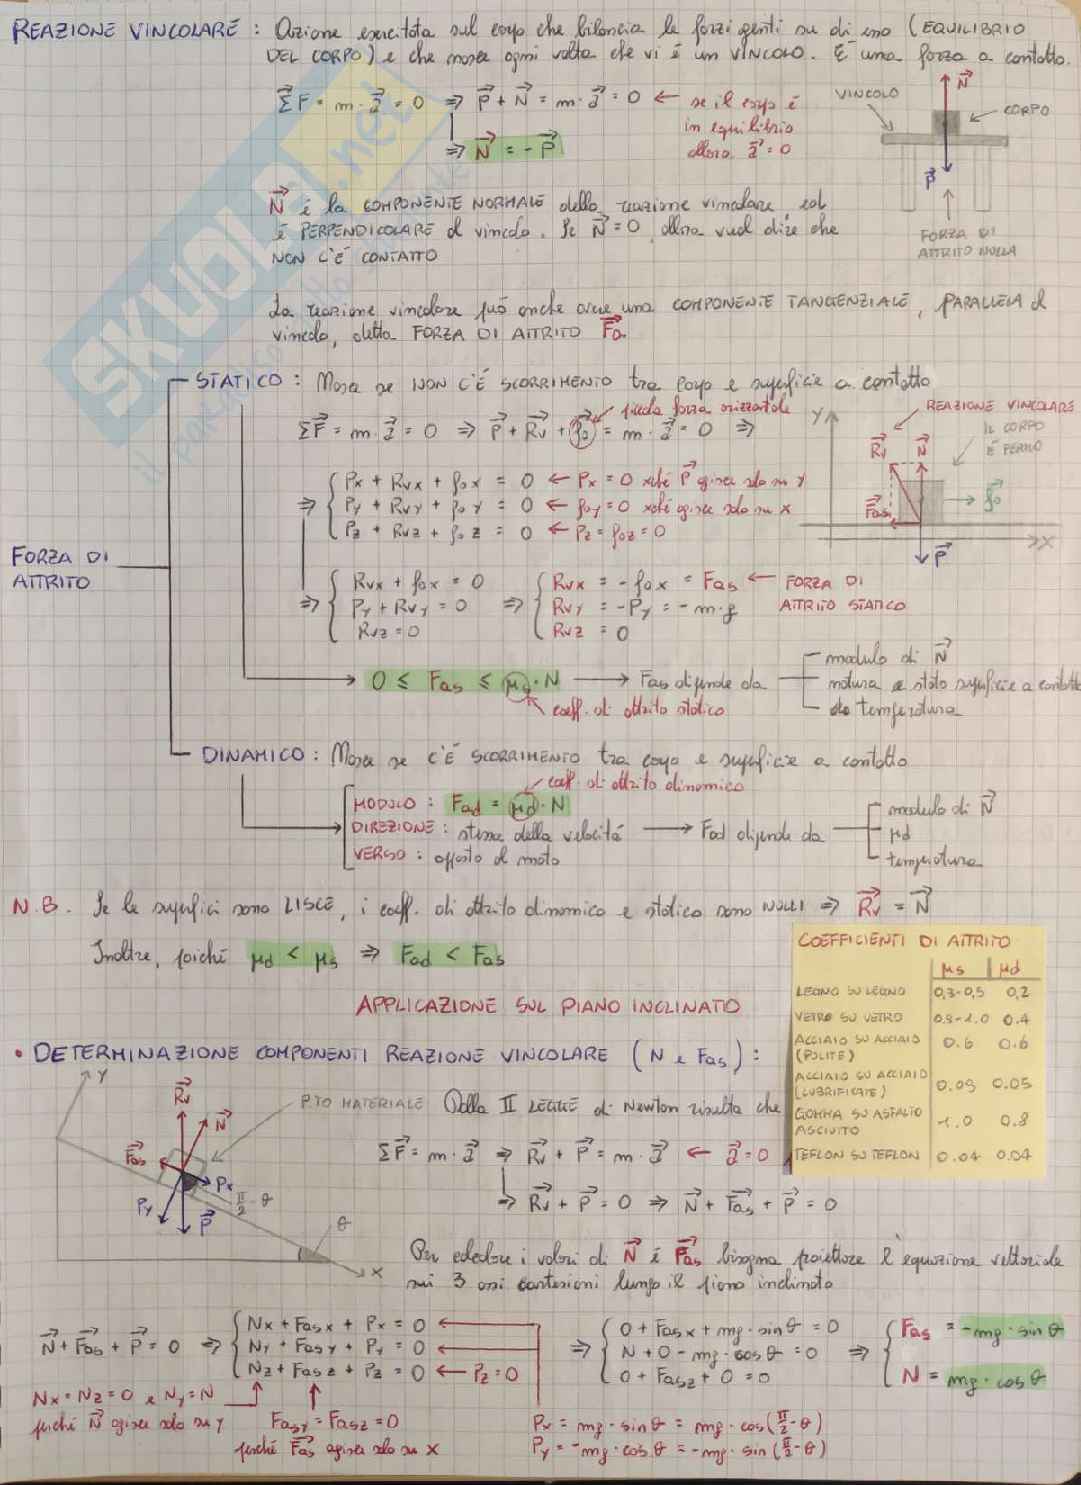 REAZIONE VINCOLARE : Azione esercitata sul corpo che bilancia le forze agenti su di esso (EQUILIBRIO
DEL CORPO) e che nasce ogni volta che vi è un VINCOLO. È una forza a contatto.
ΣF = m·a = 0 ⇒ P + N = m·a = 0 ← se il corpo è
in equilibrio
allora a = 0
⇒ N = -P
VINCOLO
N
CORPO
P
FORZA DI
ATTRITO NULLA
N è la COMPONENTE NORMALE della reazione vincolare, ed
è PERPENDICOLARE al vincolo. Se N = 0, allora vuol dire che
NON C'È CONTATTO
La reazione vincolare può anche avere una COMPONENTE TANGENZIALE, PARALLELA al
vincolo, detta FORZA DI ATTRITO Fa
FORZA DI
ATTRITO
STATICO : Nasce se NON C'È SCORRIMENTO tra corpo e superficie a contatto
piccola forza orizzontale
ΣF = m·a = 0 ⇒ P + Rv + fo = m·a = 0 ⇒
⇒ { Px + Rvx + fox = 0 ← Px = 0 xché P agisce solo su y
Py + Rvy + foy = 0 ← foy = 0 xché agisce solo su x
Pz + Rvz + foz = 0 ← Pz = foz = 0
Y
REAZIONE VINCOLARE
IL CORPO
È FERMO
Rv
N
Fas
fo
P
X
⇒ { Rvx + fox = 0 ⇒ { Rvx = -fox = Fas ← FORZA DI
Py + Rvy = 0 Rvy = -Py = -m·g ATTRITO STATICO
Rvz = 0 Rvz = 0
0 ≤ Fas ≤ μs·N → Fas dipende da
coeff. di attrito statico
modulo di N
natura e stato superficie a contatto
temperatura
DINAMICO : Nasce se C'È SCORRIMENTO tra corpo e superficie a contatto
coeff. di attrito dinamico
MODULO : Fad = μd·N
DIREZIONE : stessa della velocità → Fad dipende da
VERSO : opposto al moto
modulo di N
μd
temperatura
N.B. Se le superfici sono LISCE, i coeff. di attrito dinamico e statico sono NULLI ⇒ Rv = N
Inoltre, poiché μd < μs ⇒ Fad < Fas
COEFFICIENTI DI ATTRITO
μs | μd
LEGNO SU LEGNO 0,3-0,5 0,2
VETRO SU VETRO 0.9-1.0 0.4
ACCIAIO SU ACCIAIO (PULITE) 0.6 0.6
ACCIAIO SU ACCIAIO (LUBRIFICATE) 0.09 0.05
GOMMA SU ASFALTO ASCIUTTO ~1.0 0.8
TEFLON SU TEFLON 0.04 0.04
APPLICAZIONE SUL PIANO INCLINATO
• DETERMINAZIONE COMPONENTI REAZIONE VINCOLARE (N e Fas) :
Y
Rv
N
P.TO MATERIALE
Fas
Px
Py
P
π/2 - θ
θ
X
Dalla II LEGGE di Newton risulta che
ΣF = m·a ⇒ Rv + P = m·a ← a = 0
⇒ Rv + P = 0 ⇒ N + Fas + P = 0
Per calcolare i valori di N e Fas bisogna proiettare l'equazione vettoriale
sui 3 assi cartesiani lungo il piano inclinato
N + Fas + P = 0 ⇒ { Nx + Fasx + Px = 0
Ny + Fasy + Py = 0
Nz + Fasz + Pz = 0 ← Pz = 0
⇒ { 0 + Fasx + mg·sinθ = 0
N + 0 - mg·cosθ = 0
0 + Fasz + 0 = 0
⇒ { Fas = -mg·sinθ
N = mg·cosθ
Nx = Nz = 0 e Ny = N
perché N agisce solo su y
Fasy = Fasz = 0
perché Fas agisce solo su x
Px = mg·sinθ = mg·cos(π/2 - θ)
Py = -mg·cosθ = -mg·sin(π/2 - θ)
SKUOLA.net